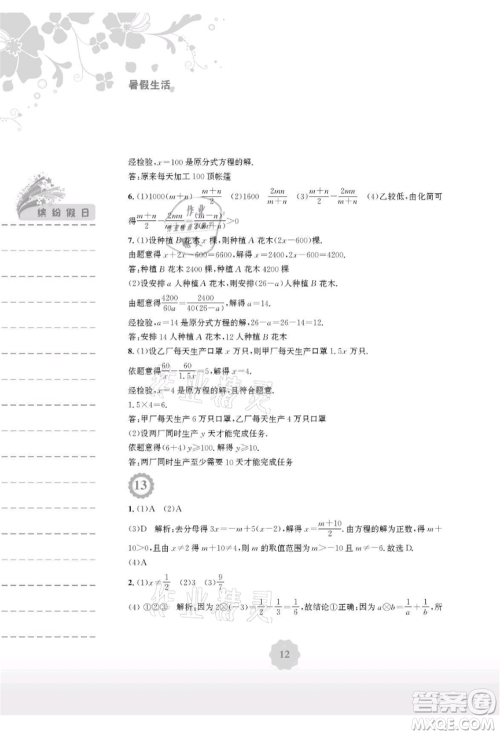 暑假生活
缤纷假日
经检验，x=100是原分式方程的解.
答：原来每天加工100顶帐篷
6.(1)1000(m+n) (m+n)/2 (2)1600 2mn/(m+n) (m+n)/2 (4)乙较低，由化简可
得(m+n)/2－2mn/(m+n)
7.(1)设种植B花木x棵，则种植A花木(2x－600)棵
由题意得x+2x－600=6600，解得x=2400
答：种植B花木2400棵，A花木4200棵
(2)设安排a人种植A花木，则安排(26－a)人种植B花木.
由题意得4200/60a=2400/40(26－a)，解得a=14
经检验，a=14是原分式方程的解，26－a=26－14=12.
答：安排14人种植A花木，12人种植B花木.
8.(1)设乙厂每天生产口罩x万只，则甲厂每天生产口罩1.5x万只.
依题意得60/x－60/1.5x=5，解得x=4.
经检验，x=4是原方程的解，且符合题意.
1.5×4=6.
答：甲厂每天生产6万只口罩，乙厂每天生产4万只口罩.
(2)设两厂同时生产y天才能完成任务.
依题意得(6+4)y=100，解得y=10
答：两厂同时生产需要10天才能完成任务.
13
1.(1)A (2)A
(3)D 解析：去分母得3x=－m+5(x－2)，解得x=(m+10)/2.因为方程的解为正数，所以m+
10>0，且x≠2得m+10≠4，则m的取值范围为m>－10且m≠－6.故选D.
(4)A
2.(1)x≠1/2 (2)3 (3)9/
(4)①②③ 解析：因为2⊗(－3)=1/2－1/3=1/6，故结论①正确；因为a⊗b=1/a+1/b，所
12
作业精灵
作业精灵
答案圈
MXQE.COM